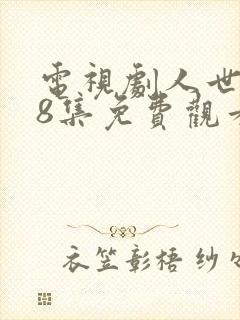 電視劇人世
8集免費觀
衣笠彰梧 紗